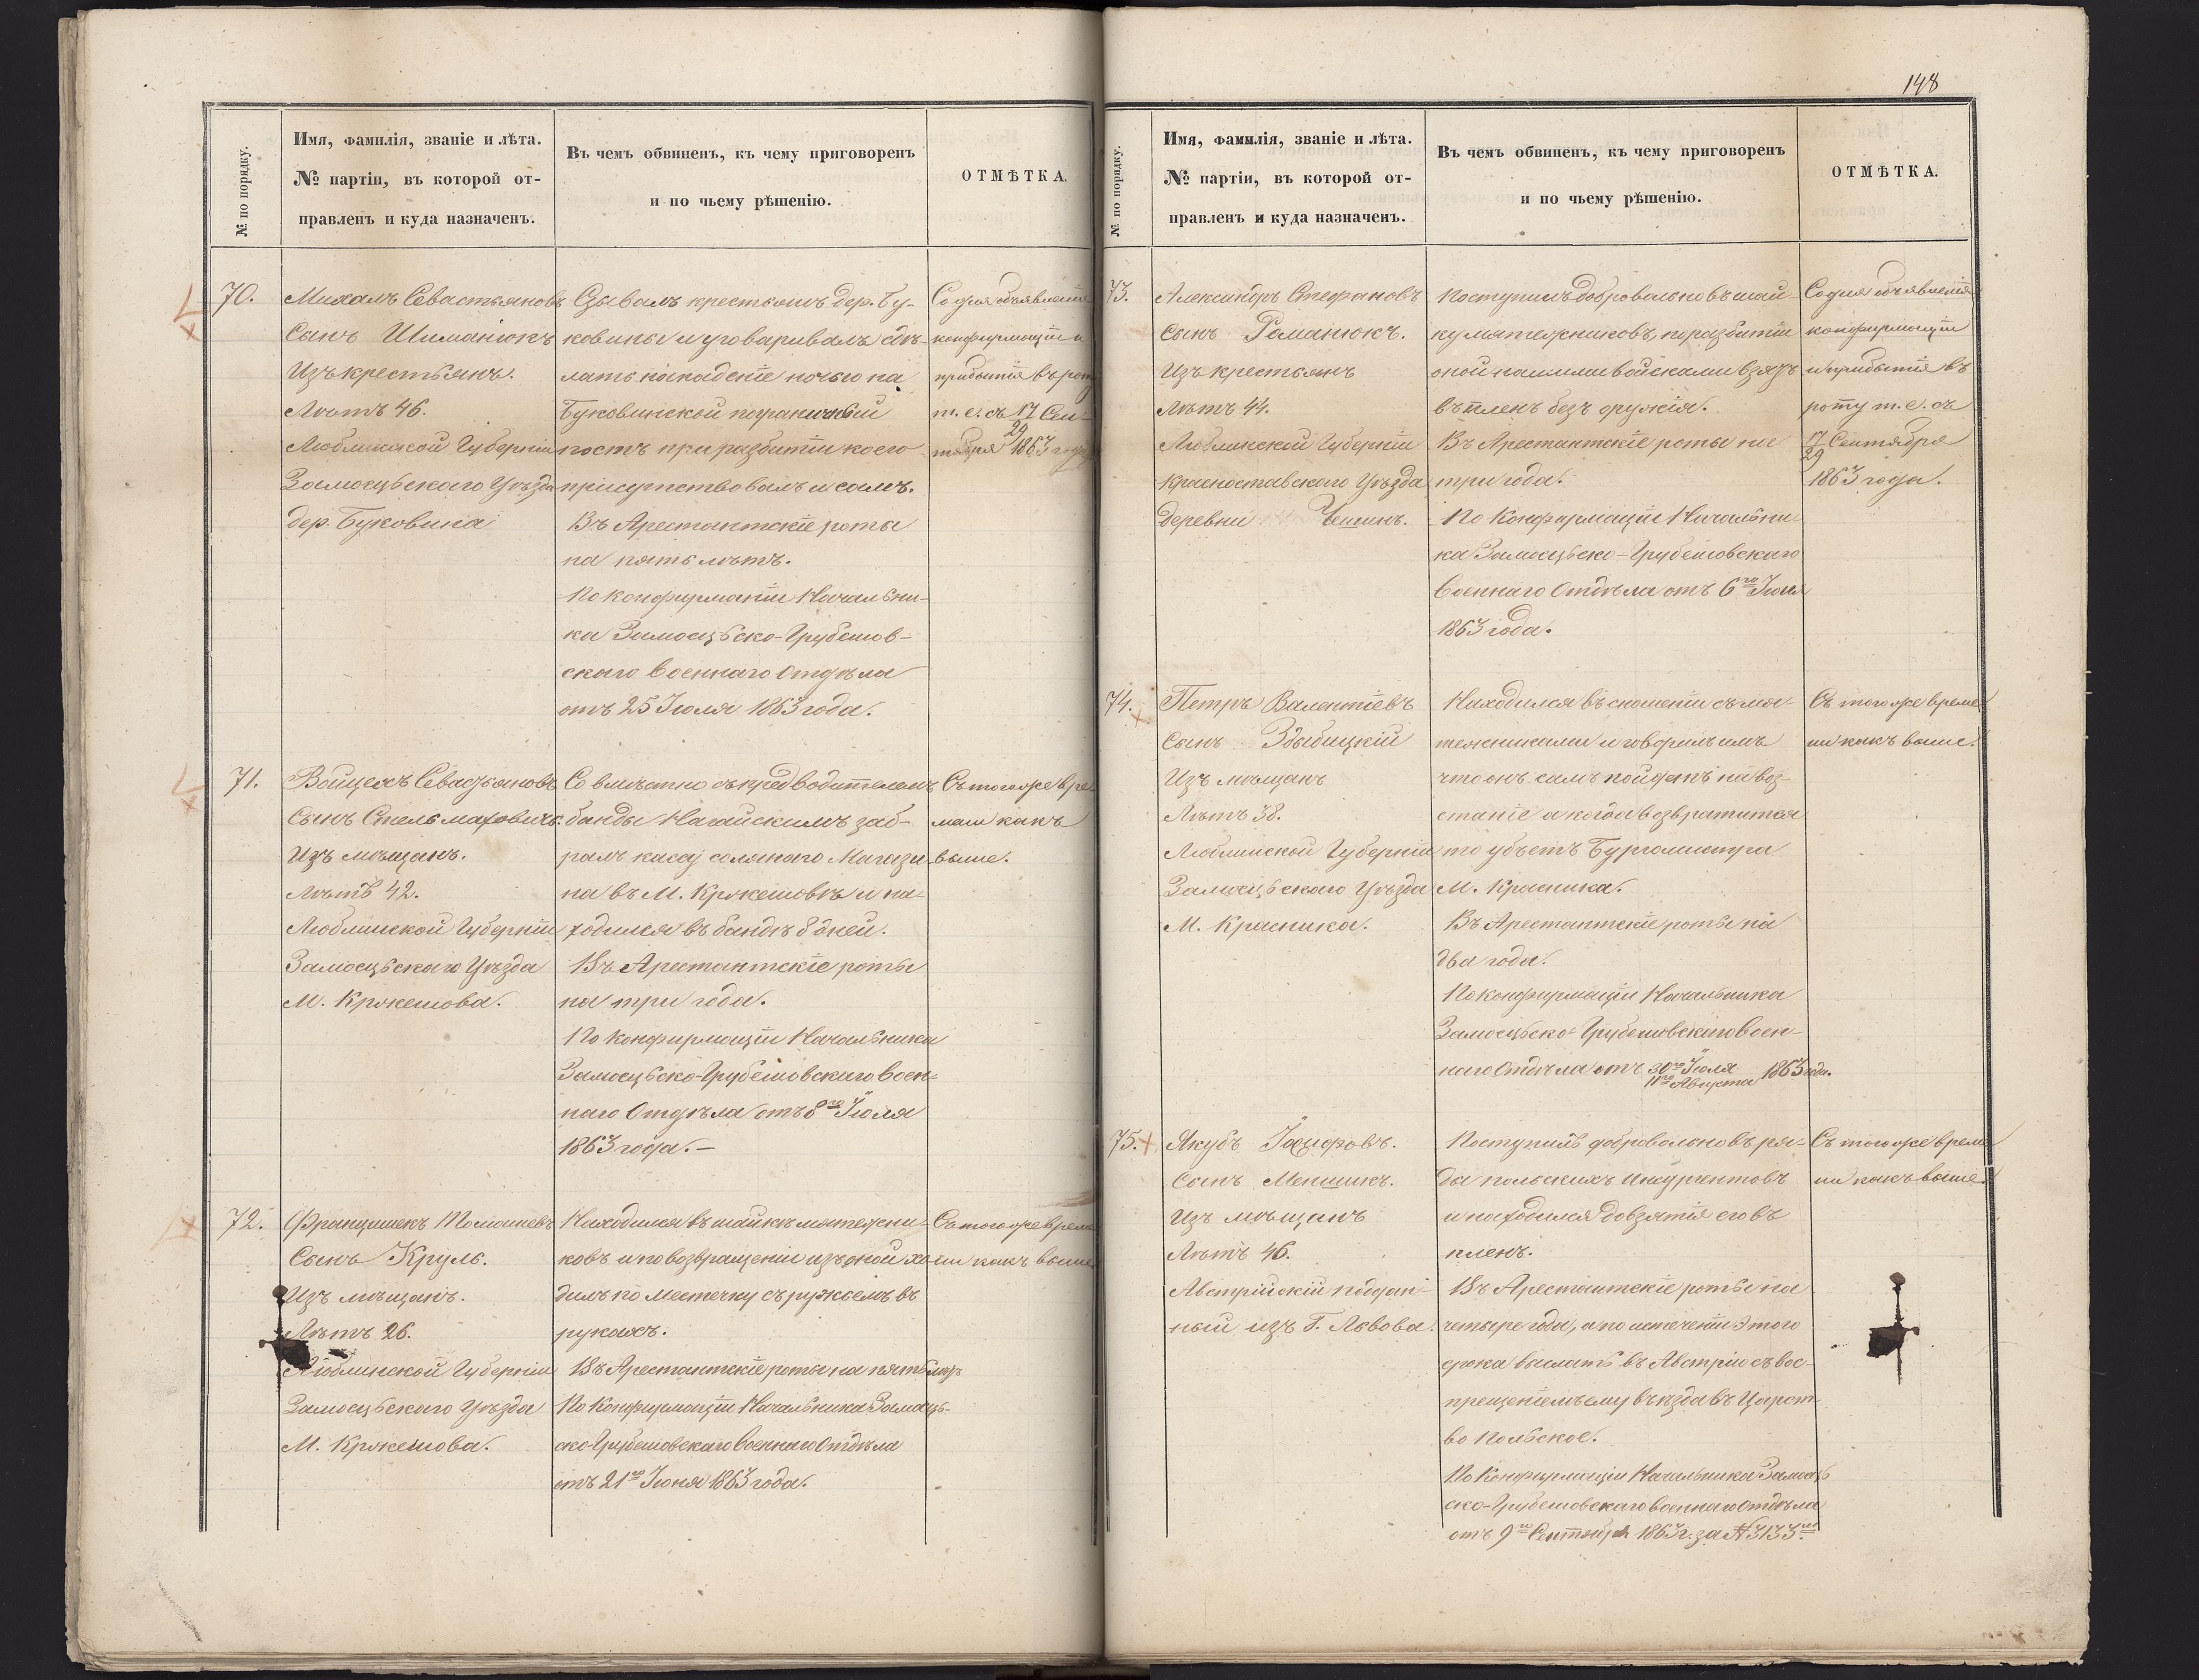 148
№ по порядку.
Имя, фамилія, званіе и лѣта.
№ партіи, въ которой от-
правленъ и куда назначенъ.
Въ чемъ обвиненъ, къ чему приговоренъ
и по чьему рѣшенію.
ОТМѢТКА.
70.
Михалъ Севастьяновъ
Сынъ Шиманюкъ
Изъ крестьянъ.
Лѣтъ 46.
Люблинской Губерніи
Замосцьскаго Уѣзда
дер. Буковина
Сзывалъ крестьянъ дер. Бу-
ковины и уговаривалъ сдѣ-
лать нападеніе ночью на
Буковинской пограничный
постъ при разбитіи коего
присутствовалъ и самъ.
Въ Арестантскіе роты
на пять лѣтъ.
По конфирмаціи Начальни-
ка Замосцьско-Грубешов-
скаго Военнаго Отдѣла
отъ 25 Іюля 1863 года.
Со дня объявленія
конфирмаціи и
прибытія въ роту
т. е. съ 17/29 Сен-
тября 1863 года
71.
Войцехъ Севастьяновъ
Сынъ Стельмаховичъ.
Изъ мѣщанъ.
Лѣтъ 42.
Люблинской Губерніи
Замосцьскаго Уѣзда
М. Кржешова.
Совмѣстно съ предводителемъ
банды Нагайскимъ заб-
ралъ кассу солянаго Магази-
на въ М. Кржешовѣ и на-
ходился въ бандѣ 8 дней.
Въ Арестантскіе роты
на три года.
По Конфирмаціи Начальника
Замосцьско-Грубешовскаго Воен-
наго Отдѣла отъ 8го Іюля
1863 года.—
Съ того же вре-
мени какъ
выше.
72.
Францишекъ Томашевъ
Сынъ Круль.
Изъ мѣщанъ.
Лѣтъ 26.
Люблинской Губерніи
Замосцьскаго Уѣзда
М. Кржешова.
Находился въ шайкѣ мятежни-
ковъ и по возвращеніи изъ оной хо-
дилъ по Местечку съ ружьемъ въ
рукахъ.
Въ Арестантскіе роты на пять лѣтъ
По Конфирмаціи Начальника Замось-
ско-Грубешовскаго Военнаго Отдѣла
отъ 21го Іюня 1863 года.
Съ того же време-
ни какъ выше
№ по порядку.
Имя, фамилія, званіе и лѣта.
№ партіи, въ которой от-
правленъ и куда назначенъ.
Въ чемъ обвиненъ, къ чему приговоренъ
и по чьему рѣшенію.
ОТМѢТКА.
73.
Александръ Стефановъ
Сынъ Романюкъ.
Изъ крестьянъ
Лѣтъ 44.
Люблинской Губерніи
Красноставскаго Уѣзда
Деревни Чешинъ.
Поступилъ добровольно въ шай-
ку мятежниковъ, по разбитіи
оной нашими войсками взятъ
въ пленъ безъ оружія.
Въ Арестантскіе роты на
три года.
По Конфирмаціи Начальни-
ка Замосцьско-Грубешовскаго
Военнаго Отдѣла отъ 6го Іюня
1863 года.
Со дня объявленія
конфирмаціи
и прибытія въ
роту т. е. съ
17/29 Сентября
1863 года.
74.
Петръ Валентіевъ
Сынъ Здыбицкій
Изъ мѣщанъ
Лѣтъ 38.
Люблинской Губерніи
Замосцьскаго Уѣзда
М. Красника.
Находился въ сношеніи съ мя-
тежниками и говорилъ имъ
что онъ самъ пойдетъ на воз-
станіе а когда возвратится
то убъетъ Бургомистра
М. Красника.
Въ Арестантскіе роты на
два года.
По конфирмаціи Начальника
Замосцьско-Грубешовскаго Воен-
наго Отдѣла отъ 30го Іюля/11го Августа 1863 года.
Съ того же време-
ни какъ выше.
75.
Якубъ Іозифовъ.
Сынъ Меншикъ.
Изъ мѣщанъ
Лѣтъ 46.
Австрійскій поддан-
ный изъ Г. Львова.
Поступилъ добровольно въ ря-
ды польскихъ инсургентовъ
и находился до взятія его въ
пленъ.
Въ Арестантскіе роты на
четыре года, а по истеченіи этого
срока выслать въ Австрію съ вос-
прещеніемъ ему въѣзда въ Царст-
во Польское.
По Конфирмаціи Начальника Замось-
ско-Грубешовскаго военнаго Отдѣла
отъ 9го Сентября 1863 г. за № 3133мъ
Съ того же време-
ни какъ выше.